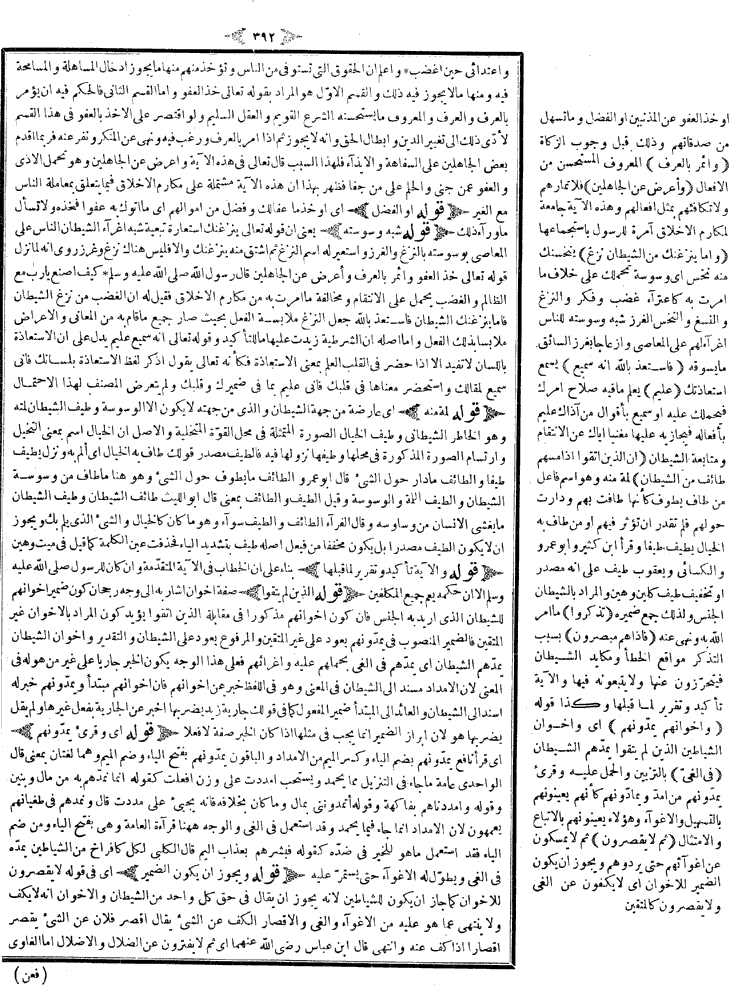 ﴿ ٣٩٢ ﴾
واعتدائى حين اغضب * واعلم ان الحقوق التى تستوفى من الناس وتؤخذ منهم منها ما يجوز ادخال المساهلة والمسامحة
فيه ومنها ما لا يجوز فيه ذلك والقسم الاوّل هو المراد بقوله تعالى خذ العفو واما القسم الثانى فالحكم فيه ان يؤمر
بالعرف والعرف والمعروف ما يستحسنه الشرع القويم والعقل السليم ولو اقتصر على الاخذ بالعفو فى هذا القسم
لأدّى ذلك الى تغيير الدين وابطال الحق وانه لا يجوز ثم اذا امر بالعرف ورغب فيه ونهى عن المنكر ونفر عنه فربما اقدم
بعض الجاهلين على السفاهة والايذآء فلهذا السبب قال تعالى فى هذه الآية واعرض عن الجاهلين وهو تحمل الاذى
والعفو عمن جنى والحلم على من جفا فظهر بهذا ان هذه الآية مشتملة على مكارم الاخلاق فيما يتعلق بمعاملة الناس
مع الغير ﴿ قوله او الفضل ﴾ اى او خذ ما عفا لك وفضل من اموالهم اى ما اتوك به عفوا فخذه ولا تسأل
ما ورآء ذلك ﴿ قوله شبه وسوسته ﴾ يعنى ان قوله تعالى ينزغنك استعارة تبعية شبه اغرآء الشيطان الناس على
المعاصى بوسوسته بالنزغ والغرز واستعير له اسم النزغ ثم اشتق منه ينزغنك والا فليس هناك نزغ وغرز روى انه لما نزل
قوله تعالى خذ العفو وأمر بالعرف وأعرض عن الجاهلين قال رسول الله صلى الله عليه وسلم * كيف اصنع يا رب مع
الظالم والغضب يحمل على الانتقام ومخالفة ما امرت به من مكارم الاخلاق فقيل له ان الغضب من نزغ الشيطان
فاما ينزغنك الشيطان فاستعذ بالله جعل النزغ ملابسة الفعل بحيث صار جميع ما قام به من المعانى والاعراض
ملابسا بذلك الفعل واما اصله ان الشرطية زيدت عليها ما للتأكيد وقوله تعالى انه سميع عليم يدل على ان الاستعاذة
باللسان لا تفيد الا اذا حضر فى القلب العلم بمعنى الاستعاذة فكأنه تعالى يقول اذكر لفظ الاستعاذة بلسانك فانى
سميع لمقالك واستحضر معناها فى قلبك فانى عليم بما فى ضميرك وقلبك ولم يتعرض المصنف لهذا الاحتمال
﴿ قوله لمة منه ﴾ اى عارضة من جهة الشيطان والذى من جهته لا يكون الا الوسوسة وطيف الشيطان لمته
وهو الخاطر الشيطانى وطيف الخيال الصورة المتمثلة فى محل القوّة المتخيلة والاصل ان الخيال اسم بمعنى التخيل
وارتسام الصورة المذكورة فى محلها وطيفها نزولها فيه فالطيف مصدر قولك طاف به الخيال اى ألم به ونزل يطيف
طيفا والطائف ما دار حول الشئ قال ابو عمرو الطائف ما يطوف حول الشئ وهو هنا ما طاف من وسوسة
الشيطان والطيف اللمة والوسوسة وقيل الطيف والطائف بمعنى قال ابو الليث طائف الشيطان وطيف الشيطان
ما يغشى الانسان من وساوسه وقال الفرآء الطائف والطيف سوآء وهو ما كان كالخيال والشئ الذى يلم بك ويجوز
ان لا يكون الطيف مصدرا بل يكون مخففا من فيعل اصله طيف بتشديد الياء فحذفت عين الكلمة كما قيل فى ميت وهين
﴿ قوله والآية تأكيد وتقرير لما قبلها ﴾ بناء على ان الخطاب فى الآية المتقدّمة وان كان للرسول صلى الله عليه
وسلم الا ان حكمه يعم جميع المكلفين ﴿ قوله الذين لم يتقوا ﴾ صفة اخوان اشار به الى وجه رجحان كون ضمير اخوانهم
للشيطان الذى اريد به الجنس فان كون اخوانهم مذكورا فى مقابلة الذين اتقوا يؤيد كون المراد بالاخوان غير
المتقين فالضمير المنصوب فى يمدّونهم يعود على غير المتقين والمرفوع يعود على الشيطان والتقدير واخوان الشيطان
يمدّهم الشيطان اى يمدّهم فى الغى بحملهم عليه واغرائهم فعلى هذا الوجه يكون الخبر جاريا على غير من هو له فى
المعنى لان الامداد مسند الى الشيطان فى المعنى وهو فى اللفظ خبر عن اخوانهم فان اخوانهم مبتدأ ويمدّونهم خبر له
اسند الى الشيطان والعائد الى المبتدأ ضمير المفعول كما فى قولك جارية زيد يضربها اخبر عن الجارية بفعل غيرها ولم يقل
يضربها هو لان ابراز الضمير انما يجب فى مثلها اذا كان الخبر صفة لا فعلا ﴿ قوله اى وقرئ يمدّونهم ﴾
اى قرأ نافع يمدّونهم بضم الياء وكسر الميم من الامداد والباقون يمدّونهم بفتح الياء وضم الميم وهما لغتان بمعنى قال
الواحدى عامة ما جاء فى التنزيل مما يحمد ويستحب امددت على وزن افعلت كقوله انما نمدّهم به من مال وبنين
وقوله وامددناهم بفاكهة وقوله أتمدوننى بمال وما كان بخلافه فانه يجئ على مددت قال ونمدهم فى طغيانهم
يعمهون لان الامداد انما جاء فيما يحمد وقد استعمل فى الغى والوجه ههنا قرآءة العامة وهى بفتح الياء ومن ضم
الياء فقد استعمل ما هو للخير فى ضدّه كقوله فبشرهم بعذاب اليم قال الكلبى لكل كافر اخ من الشياطين يمدّه
فى الغى ويطوّل له الاغوآء حتى يستمرّ عليه ﴿ قوله ويجوز ان يكون الضمير ﴾ اى فى قوله لا يقصرون
للاخوان كما جاز ان يكون للشياطين لانه يجوز ان يقال فى حق كل واحد من الشيطان والاخوان انه لا يكف
ولا ينتهى عما هو عليه من الاغوآء والغى والاقصار الكف عن الشئ يقال اقصر فلان عن الشئ يقصر
اقصارا اذا كف عنه وانتهى قال ابن عباس رضى الله عنهما اى ثم لا يفترون عن الضلال والاضلال اما الغاوى
( فعن )
او خذ العفو عن المذنبين او الفضل وما تسهل
من صدقاتهم وذلك قبل وجوب الزكاة
( وأمر بالعرف ) المعروف المستحسن من
الافعال ( وأعرض عن الجاهلين ) فلا تمارهم
ولا تكافئهم بمثل افعالهم وهذه الآية جامعة
لمكارم الاخلاق آمرة للرسول باستجماعها
( واما ينزغنك من الشيطان نزغ ) ينخسنك
منه نخس اى وسوسة تحملك على خلاف ما
امرت به كاعترآء غضب وفكر والنزغ
والنسغ والنخس الغرز شبه وسوسته للناس
اغرآء لهم على المعاصى وازعاجا بغرز السائق
ما يسوقه ( فاستعذ بالله انه سميع ) يسمع
استعاذتك ( عليم ) يعلم ما فيه صلاح امرك
فيحملك عليه او سميع بأقوال من آذاك عليم
بأفعاله فيجازيه عليها مغنيا اياك عن الانتقام
ومتابعة الشيطان ( ان الذين اتقوا اذا مسهم
طائف من الشيطان ) لمة منه وهو اسم فاعل
من طاف يطوف كأنها طافت بهم ودارت
حولهم فلم تقدر ان تؤثر فيهم او من طاف به
الخيال يطيف طيفا وقرأ ابن كثير وابو عمرو
والكسائى ويعقوب طيف على انه مصدر
او تخفيف طيف كلين وهين والمراد بالشيطان
الجنس ولذلك جمع ضميره ( تذكروا ) ما امر
الله به ونهى عنه ( فاذا هم مبصرون ) بسبب
التذكر مواقع الخطأ ومكايد الشيطان
فيتحرّزون عنها ولا يتبعونه فيها والآية
تأكيد وتقرير لما قبلها وكذا قوله
( واخوانهم يمدّونهم ) اى واخوان
الشياطين الذين لم يتقوا يمدّهم الشيطان
( فى الغىّ ) بالتزيين والحمل عليه وقرئ
يمدّونهم من امدّ ويمادّونهم كأنهم يعينونهم
بالتسهيل والاغوآء وهؤلاء يعينونهم بالاتباع
والامتثال ( ثم لا يقصرون ) ثم لا يمسكون
عن اغوآئهم حتى يردوهم ويجوز ان يكون
الضمير للاخوان اى لا يكفون عن الغى
ولا يقصرون كالمتقين